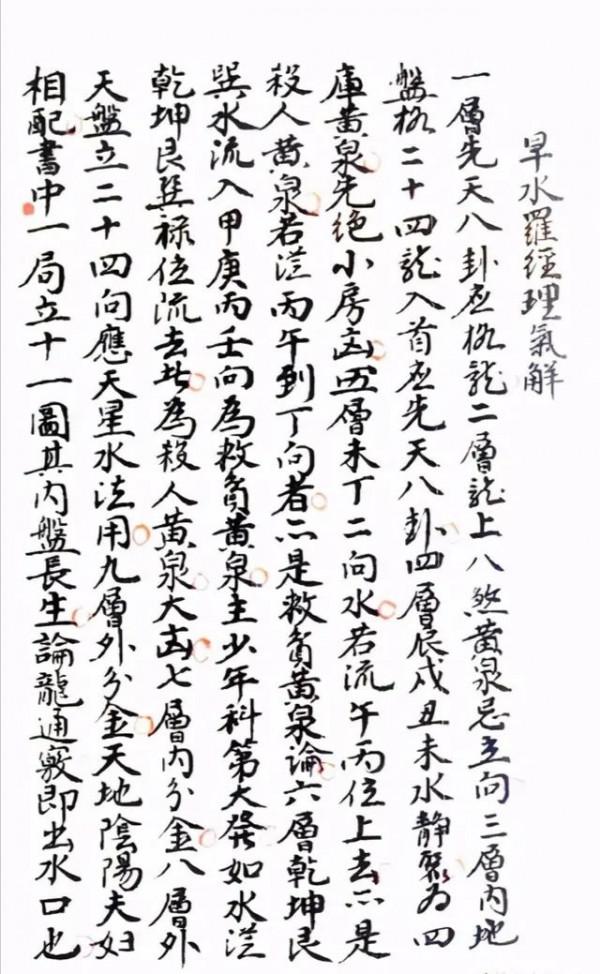 旱水羅經理氣解
一層先天八卦應格龍二層龍上八煞黃泉忌立向三層內地
盤格二十四龍入首應先天八卦四層辰戌丑未水靜聚為四
庫黃泉先絕小房凶五層未丁二向水若流午丙位上去亦是
殺人黃泉若從丙午到丁向者亦是救貧黃泉論六層乾坤艮
巽水流入甲庚丙壬向為救貧黃泉主少年科第大發如水從
乾坤艮巽祿位流去此為殺人黃泉大凶七層內分金八層外
天盤立二十四向應天星水法用九層外分金天地陰陽夫婦
相配書中一局立十一圖其內盤長生論龍通竅即出水口也